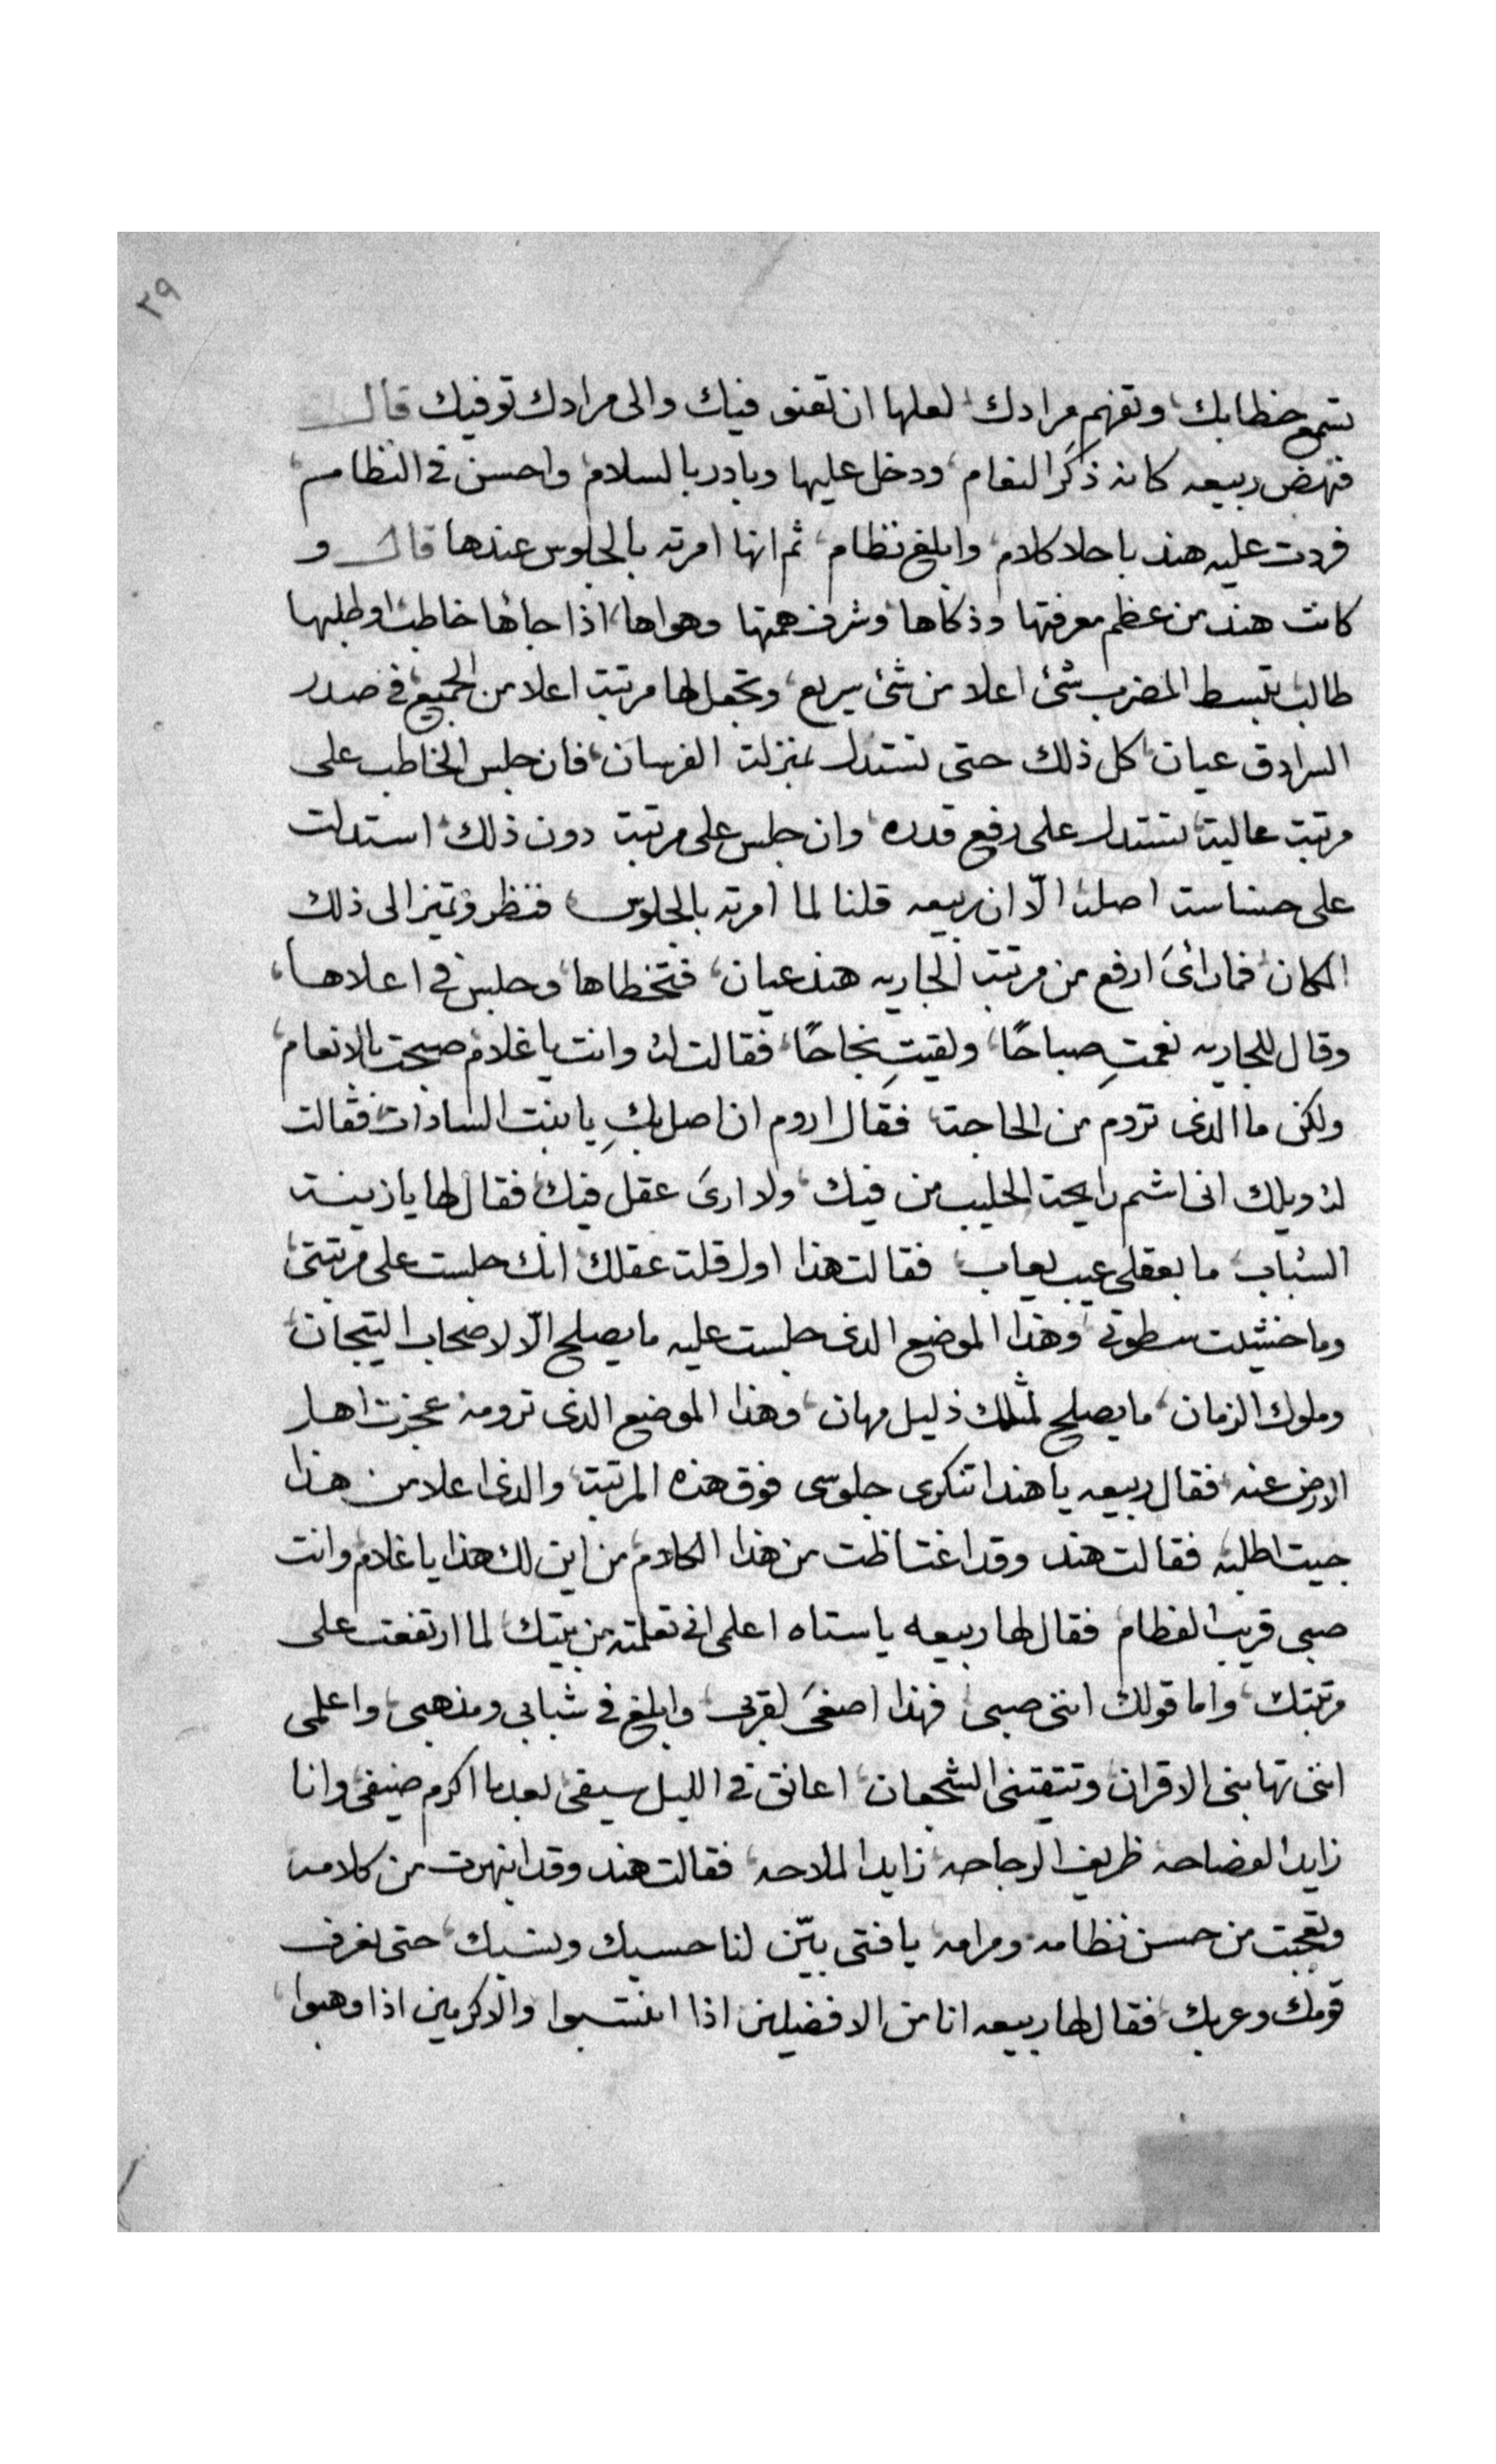 ٢٩
تسمع خطابك، وتفهم مرادك، لعلها ان تعنو فيك والى مرادك توفيك قال
فنهض ربيعه كانه ذكر النعام، ودخل عليها وبادر بالسلام، واحسن في النظام،
فردت عليه هند باحلا كلام، وابلغ نظام، ثم انها امرته بالجلوس عندها قال و
كانت هند من عظم معرفتها وذكاها، وشرف همتها وهواها، اذا جاها خاطب او طلبها
طالب تبسط المضرب شئ اعلا من شئ سريع، وتجعل لها مرتبت اعلا من الجميع، في صدر
السرادق عيان، كل ذلك حتى تستدل بمنزلت الفرسان، فان جلس الخاطب على
مرتبت عالية، تستدل على رفيع قدره، وان جلس على مرتبت دون ذلك، استدلت
على خساست اصله، الّا ان ربيعه قلنا لما امرته بالجلوس، فنظر وتميز الى ذلك
المكان، فما رائ ارفع من مرتبت الجاريه هند عيان، فتخطاها، وجلس في اعلاها،
وقال للجاريه نعمتِ صباحًا، ولقيتِ نجاحًا، فقالت له، وانت يا غلام صبحت بالانعام،
ولكن ما الذى تروم من الحاجة، فقال اروم ان اصل بكِ يا بنت السادات، فقالت
له ويلك انى اشم رايحة الحليب من فيك، ولا ارى عقل فيك، فقال لها يا زينت
الشباب، ما بعقلى عيب يعاب، فقالت هذا اول قلت عقلك، انك جلست على مرتبتى،
وما خشيت سطوتى، وهذا الموضع الذى جلست عليه ما يصلح الّا لاصحاب التيجان،
وملوك الزمان، ما يصلح لمثلك ذليل مهان، وهذا الموضع الذى ترومه عجزت اهل
الارض عنه، فقال ربيعه يا هند اتنكرى جلوسى فوق هذه المرتبة، والذى اعلا من هذا
جيت اطلبه، فقالت هند وقد اغتاظت من هذا الكلام، من اين لك هذا يا غلام، وانت
صبى قريب الفطام، فقال لها ربيعه يا ستاه اعلمى انى تعلمته من بيتك، لما ارتفعت على
مرتبتك، واما قولك اننى صبى، فهذا اصغى لقربى، وابلغ في شبابى ومذهبى، واعلمى
اننى تهابنى الاقران، وتتقتنى الشجعان، اعانق في الليل سيفى، بعد ما اكرم ضيفى، وانا
زايد الفصاحه، ظريف الرجاحه، زايد الملاحه، فقالت هند وقد انبهرت من كلامه،
وتعجبت من حسن نظامه، ومرامه، يا فتى بيّن لنا حسبك ونسبك، حتى نعرف
قومك وعربك، فقال لها ربيعه انا من الافضلين اذا انتسبوا، والاكرمين اذا وهبوا،